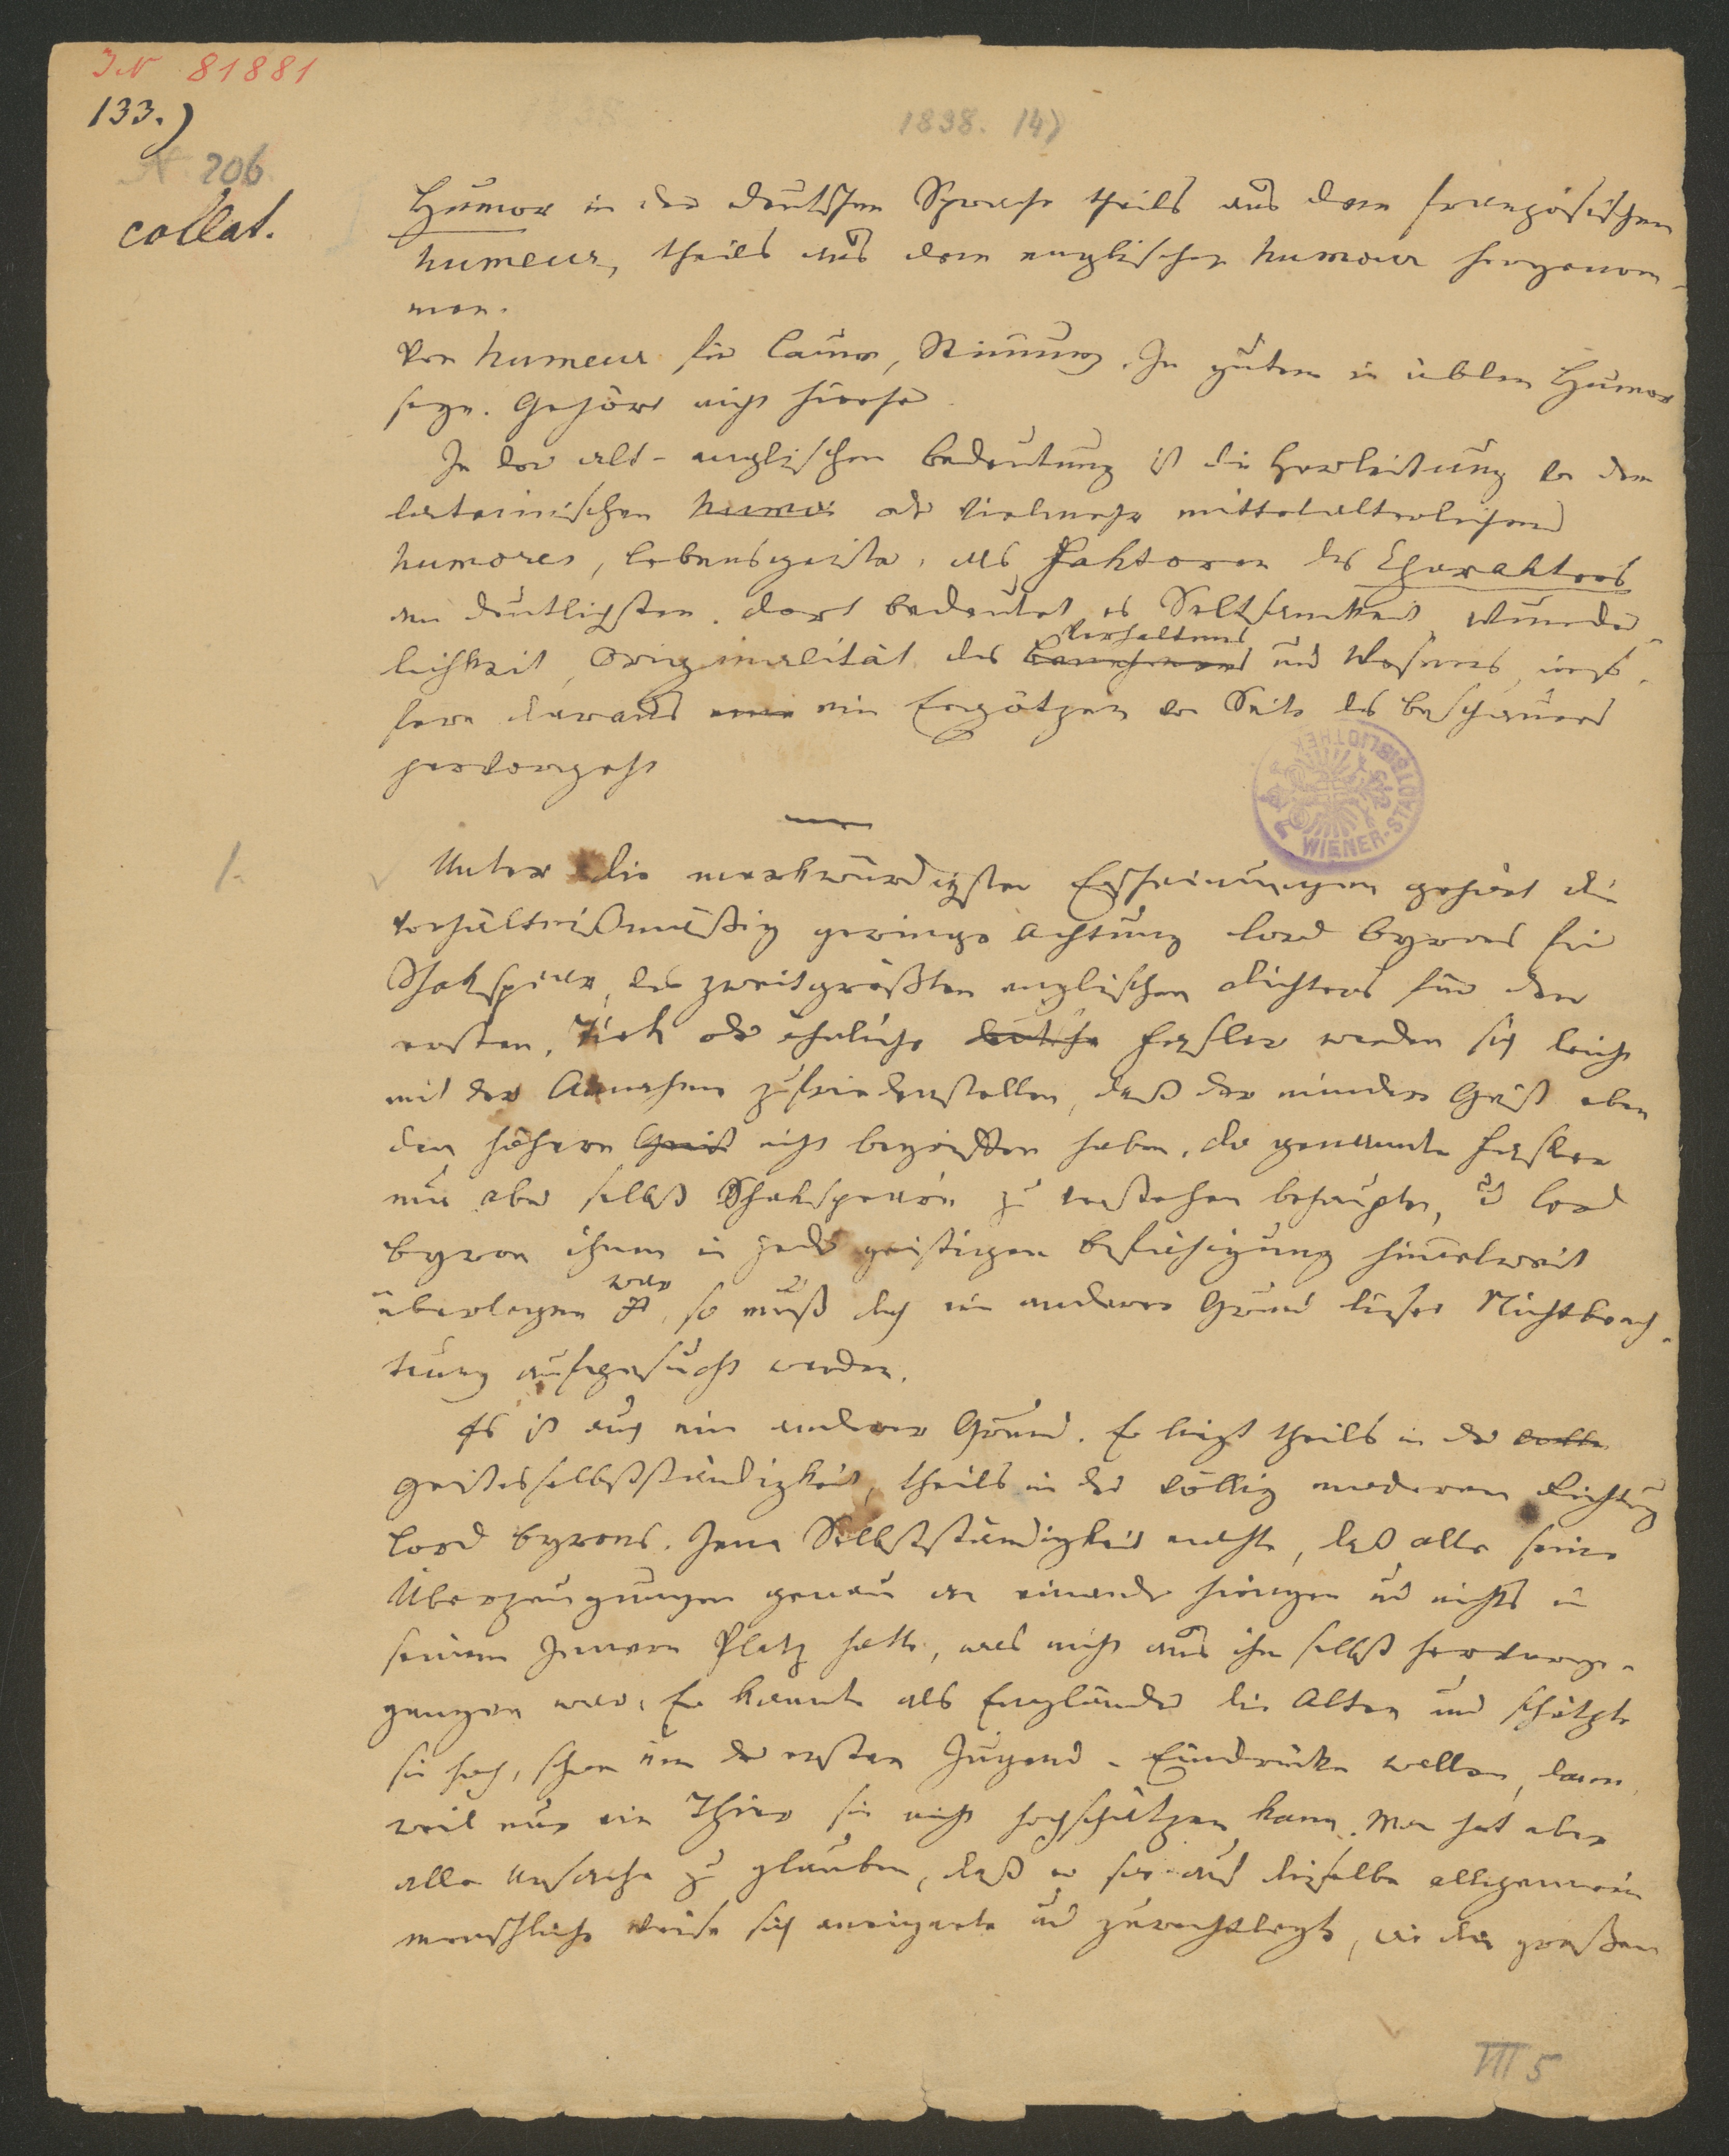 IN 81881
133.)
N 206
collat.
1838. 14)
Humor in der deutschen Sprache theils aus dem französischen
humeur, theils aus dem englischen humour hergenom-
men.
Von humeur für Laune, Stimmung. In gutem in üblem Humor
seyn. Gehört nicht hierher
In der alt-englischen Bedeutung ist die Herleitung von dem
lateinischen humor oder vielmehr mittelalterlichen
humores, Lebensgeister, als Faktoren des Charakters
am deutlichsten. Dort bedeutet es Seltsamkeit, Wunder-
lichkeit, Originalität des Benehmens Verhaltens und Wesens, inso-
fern daraus eine ein Ergötzen von Seite des Beschauers
hervorgeht
1.
Unter die merkwürdigsten Erscheinungen gehört die
verhältnißmäßig geringe Achtung Lord Byrons für
Shakspear, des zweitgrößten englischen Dichters für den
ersten. Tiek oder ähnliche deutsche Faseler werden sich leicht
mit der Annahme zufriedenstellen, daß der mindere Geist eben
den höhern Geist nicht begriffen habe. Da genannte Faseler
nun aber selbst Shakspearn zu verstehen behaupten, und Lord
Byron ihnen in jeder geistigen Befähigung himmelweit
überlegen ist war, so muß doch ein anderer Grund dieser Nichtbeach-
tung aufgesucht werden.
Es ist auch ein anderer Grund. Er liegt theils in der
Geistesselbstständigkeit, theils in der völlig modernen Richtung
Lord Byrons. Jene Selbstständigkeit machte, daß alle seine
Überzeugungen genau an einander hiengen und nichts in
seinem Innern Platz hatte, was nicht aus ihm selbst hervorge-
gangen war. Er kannte als Engländer die Alten und schätzte
sie hoch, schon um der ersten Jugend-Eindrücke willen, dann
weil nur ein Thier sie nicht hochschätzen kann. Man hat aber
alle Ursache zu glauben, daß er sie auf dieselbe allgemein
menschliche Weise sich aneignete und zurechtlegte, wie die großen
WIENER-STADTBIBLIOTHEK
VII 5